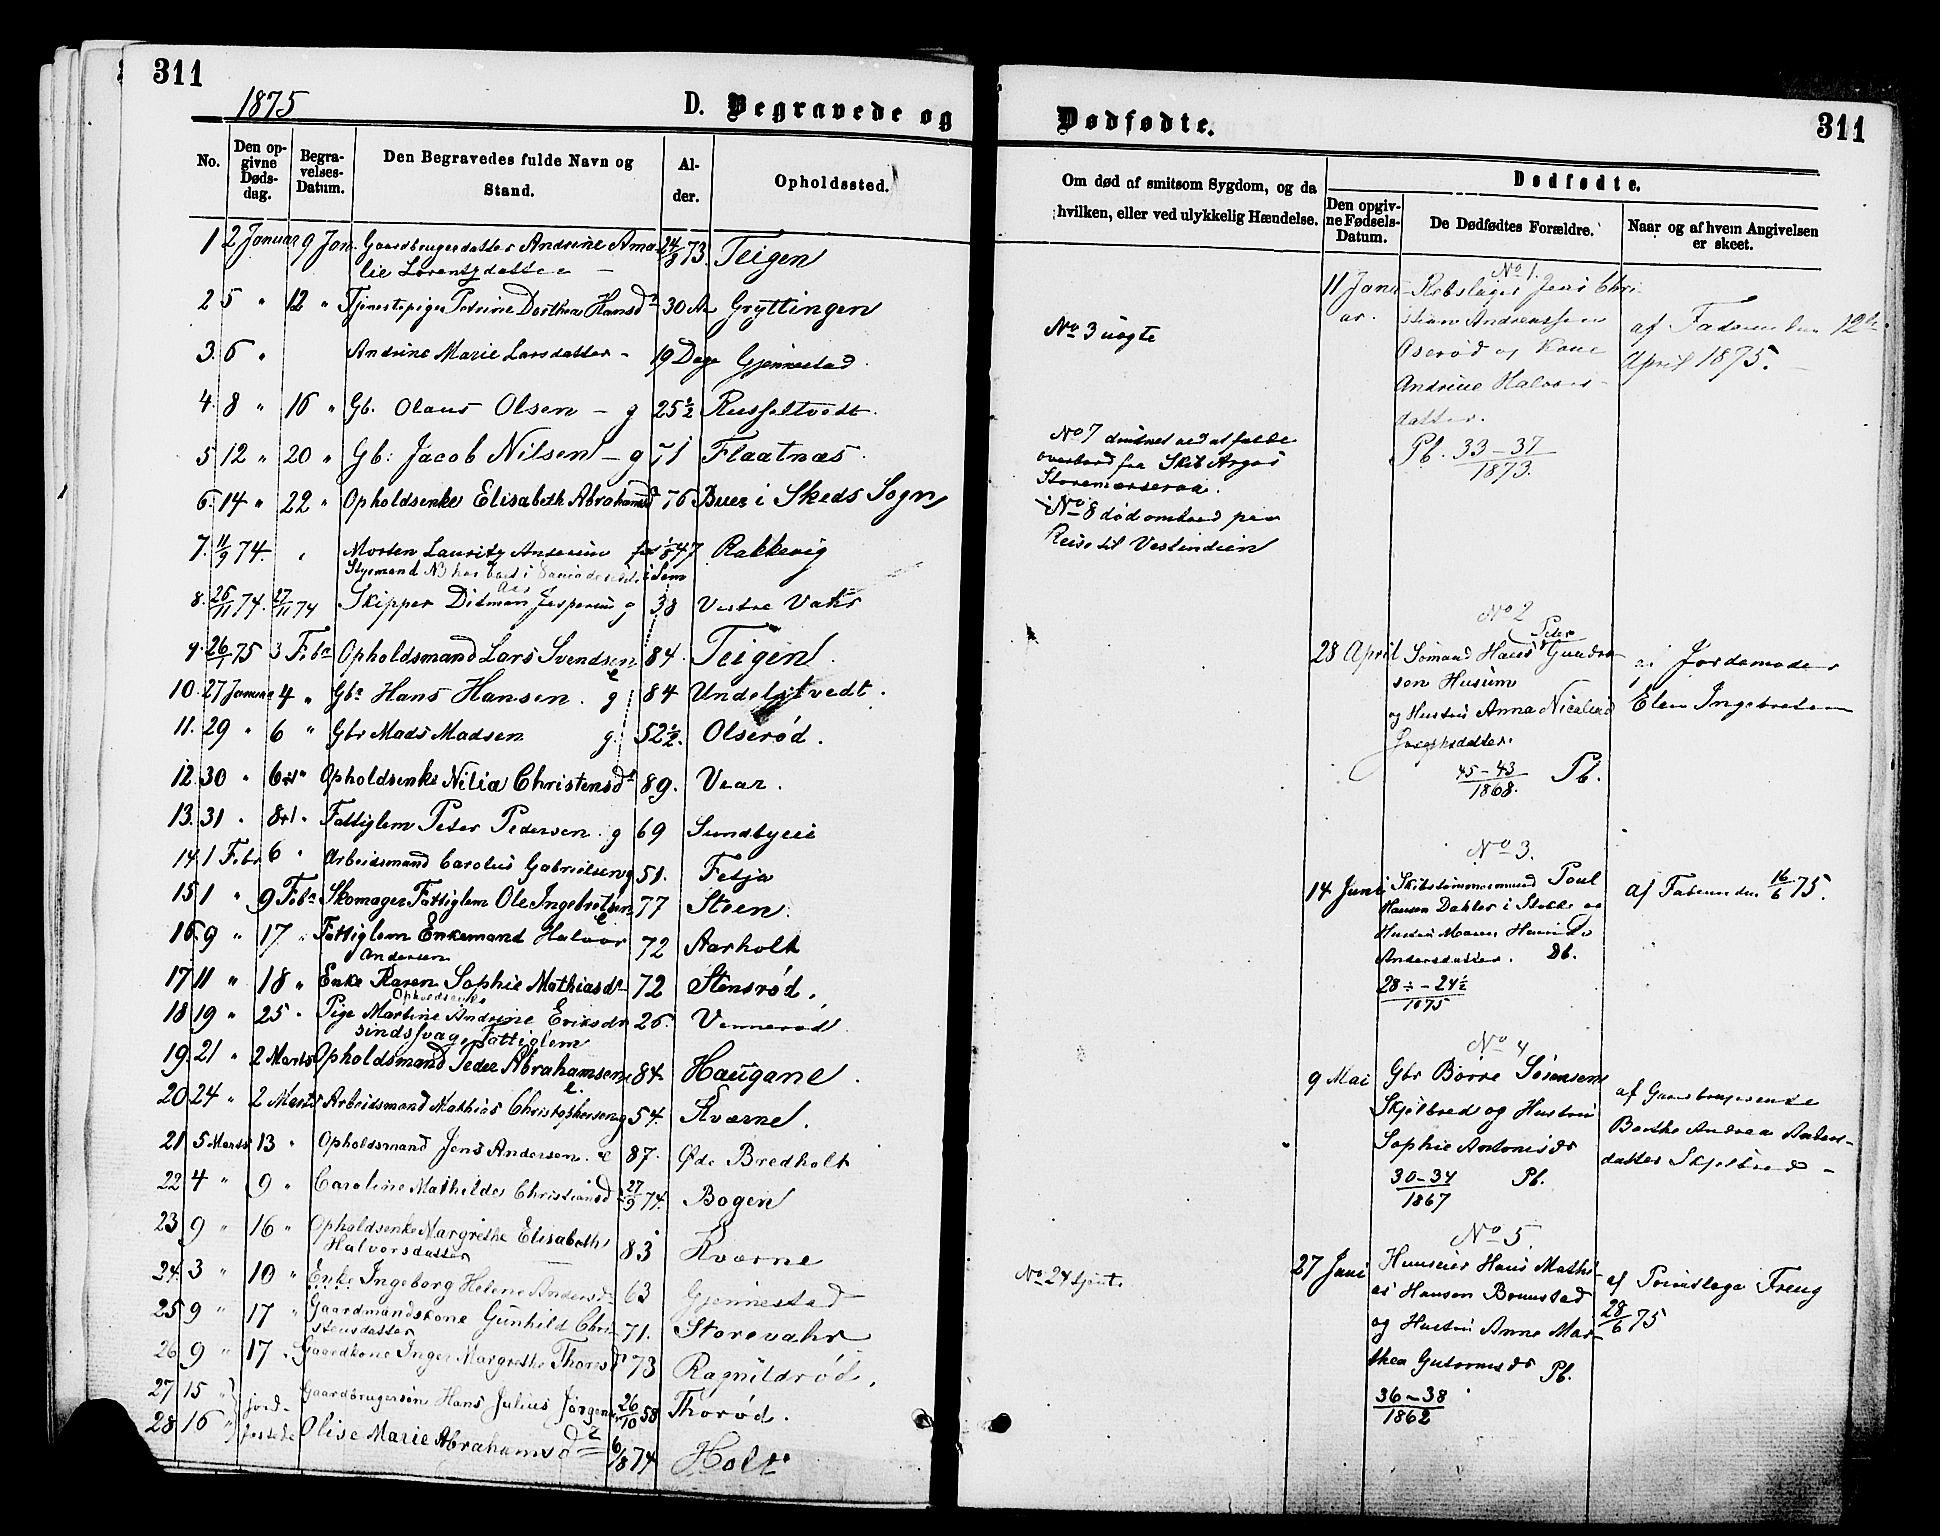 311
1875
D. Begravede og
No.
Den opgivne Dødsdag.
Begravelses-Datum.
Den Begravedes fulde Navn og Stand.
Alder.
Opholdssted.
1 2 Januar 9 Jan. Gaardbrugerdatter Andrine Ama- 24/9 73. Teigen
lie Lorentzdatter
2 5 " 12 " Tjenestepige Petrine Dorthea Hansdr 30 Aar Gryttingen
3. 6 " Andrine Marie Larsdatter - 19 Dage Gjennestad.
4. 8 " 16 " Gb. Olaus Olsen - g 25 1/2 Russeltvedt.
5 12 " 20 " Gb: Jacob Nilsen - g 71 Flaatnæs.
6. 14 " 22 " Opholdsenke Elisabeth Abrahamsd 76 Buer i Skeds Sogn
7. 11/9 74. " Morten Lauritz Ansersen 47. Rakkevig
Styrmand NB har Sem
8. 26/11 74. 27/11 74 Skipper Ditman Jespersen g 38 Vestre Vahr
9. 26/1 75 3 Febr Opholdsmand Lars Svendsen 84. Teigen.
10. 27 Januar 4 " Gbr Hans Hansen. g 84 Undelstvedt.
11. 29 " 6 " Gbr Mads Madsen g. 52 1/2. Olserød.
12. 30 " 6 " Opholdsenke Nilia Christensdr 89. Vear.
13. 31 " 8 " Fattiglem Peter Pedersen. g 69 Sundbyeie
14. 1 Febr 6 " Arbeidsmand Carolus Gabrielsen g 51. Fetja
15 1 " 9 Febr Skomager Fattiglem Ole Ingebretsen 77 Steen.
16. 9 " 17 " Fattiglem Enkemand Halvor 72 Aarholt
Andersen
17 11 " 18 " Enke Karen Sophie Mathiasdr 72 Stensrød.
Opholdsenke
18 19 " 25 " Pige Martine Andrine Eriksdr 26. Vennerød.
sindssvag Fattiglem
19. 21 " 2 Marts Opholdsmand Peder Abrahamsen 84. Haugane.
20 24 " 2 Marts Arbeidsmand Mathias Christophersen g 54. Kværne.
21 5 Marts 13 " Opholdsmand Jens Andersen. e 87. Øde Bredholt
22 4 " 9 " Caroline Mathilde Christiansd 27/9 74. Bogen
23 9 " 16 " Opholdsenke Margrethe Elisabeth 83 Kværne
Halvorsdatter
24. 3 " 10 " Enke Ingeborg Helene Andersdr 63 Gjennestad
25 9 " 17 " Gaardmandskone Gunhild Chri- 71. Storevahr
stensdatter
26 9 " 17 " Gaardkone Inger Margrethe Thoresdr 73 Ragnildrød.
27 15 " jord- Gaardbrugersøn Hans Julius Jørgensen 26/10 58 Thorød.
28 16 " fæstede Olise Marie Abrahamsdr 6/8 74 Holt
Dødfødte.
311
Om død af smitsom Sygdom, og da
hvilken, eller ved ulykkelig Hændelse.
Dødfødte.
Den opgivne Fødsels-Datum.
De Dødfødtes Forældre.
Naar og af hvem Angivelsen er skeet.
No 3 uægte
No 7 druknet ved at falde
overbord fra Skib Argos
No 8 død ombord paa
Reise til Vestindien
No 24 tjent.
No 1.
11 Janu-
ar.
Rebslager Jens Chri-
stian Andreassen
Oserød og Kone
Andrine Halvors-
datter.
Pb. 33-37
1873.
af Faderen den 12te
April 1875.
No 2
28 April
Sømand Hans Peter Gundersen Husum
og Hustru Anna Nicoline
Josephsdatter.
45-43
1868. Pb.
af Jordemoder
Elen Ingebretsen
No 3.
14 Juni
Skibstømmermand Poul
Hansen Dahler i Stokke og
Hustru Maren
Andersdatter. Db.
28 1/2 - 24 1/2
1875
af Faderen den 16/6 75.
No 4
9 Mai
Gbr Børre Sørensen
Skjelbred og Hustru
Sophie Antonisdr
30-34 Pb.
1867
af Gaardbrugerenke
Berthe Andrea Anders-
datter Skjelbred
No 5
27 Juni
Huuseier Hans Mathi-
as Hansen Brunstad
og Hustru Anne Mar-
thea Guttormsdr
Pb.
36-38
1862
af Privatlæge Freng
28/6 75